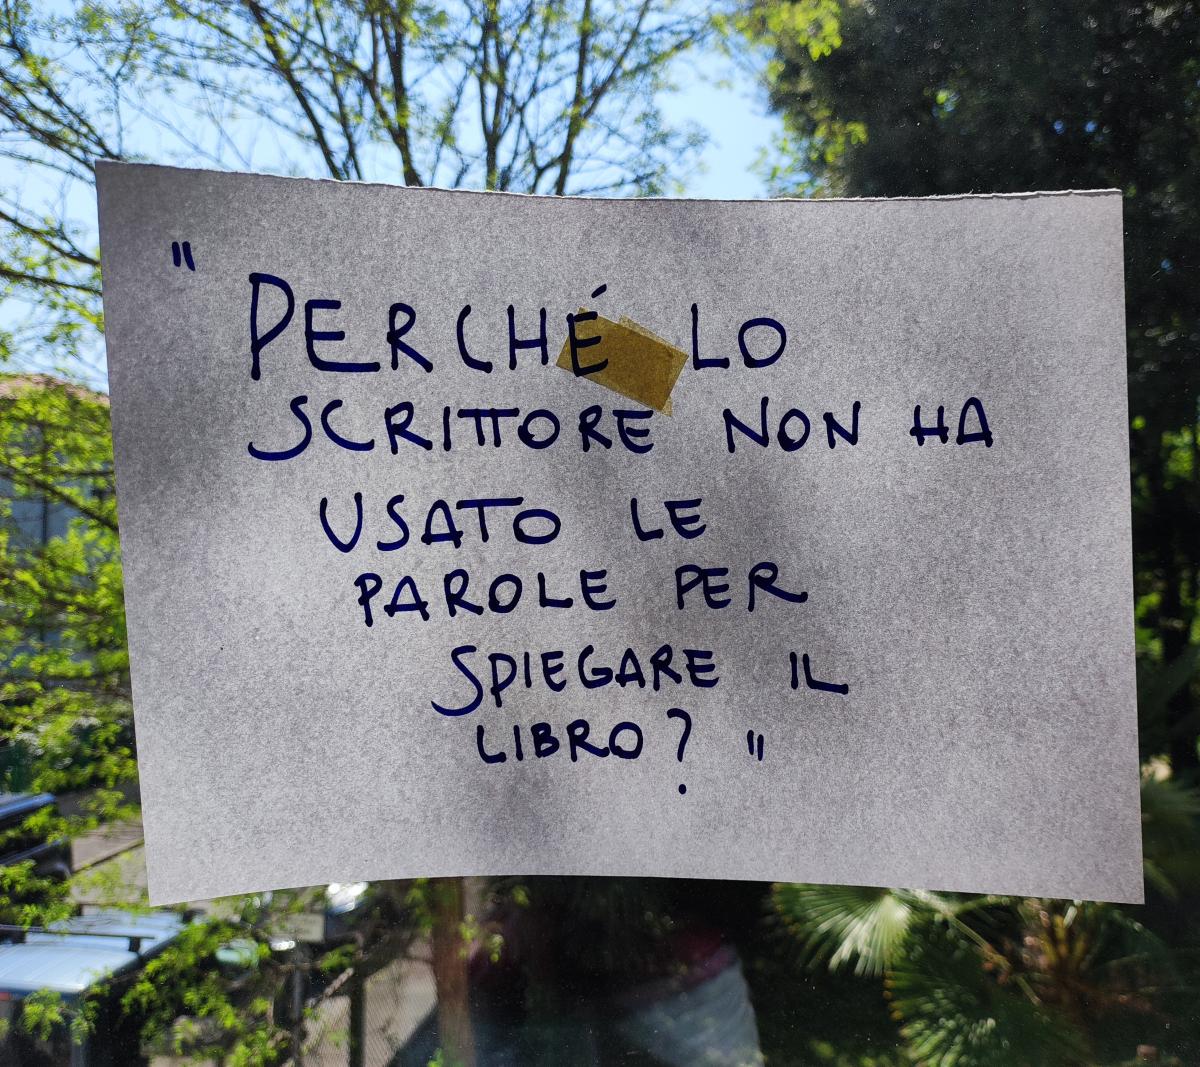 " PERCHÉ LO
SCRITTORE NON HA
USATO LE
PAROLE PER
SPIEGARE IL
LIBRO? "